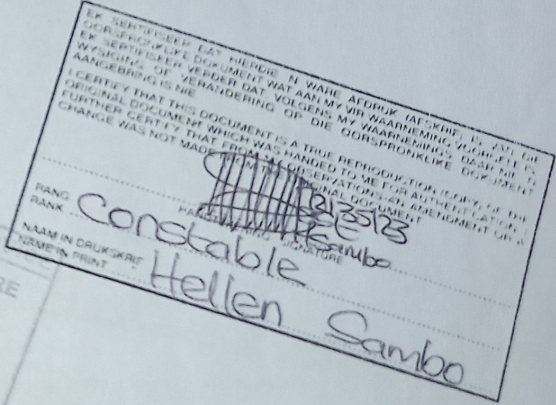 EK SERTIFISEER DAT HIERDIE 'N WARE AFDRUK (AFSKRIF) IS VAN DIE
OORSPRONKLIKE DOKUMENT WAT AAN MY VIR WAARNEMING VOORGELÊ IS.
EK SERTIFISEER VERDER DAT, VOLGENS MY WAARNEMINGS, DAAR NIE 'N
WYSIGING OF VERANDERING OP DIE OORSPRONKLIKE DOKUMENT
AANGEBRING IS NIE
I CERTIFY THAT THIS DOCUMENT IS A TRUE REPRODUCTION (COPY) OF THE
ORIGINAL DOCUMENT WHICH WAS HANDED TO ME FOR AUTHENTICATION. I
FURTHER CERTIFY THAT FROM OBSERVATIONS AN AMENDMENT OR A
CHANGE WAS NOT MADE ORIGINAL DOCUMENT
Sambo
HANDTEKENING SIGNATURE
RANG
RANK Constable
NAAM IN DRUKSKRIF
NAME IN PRINT Hellen Sambo
RE